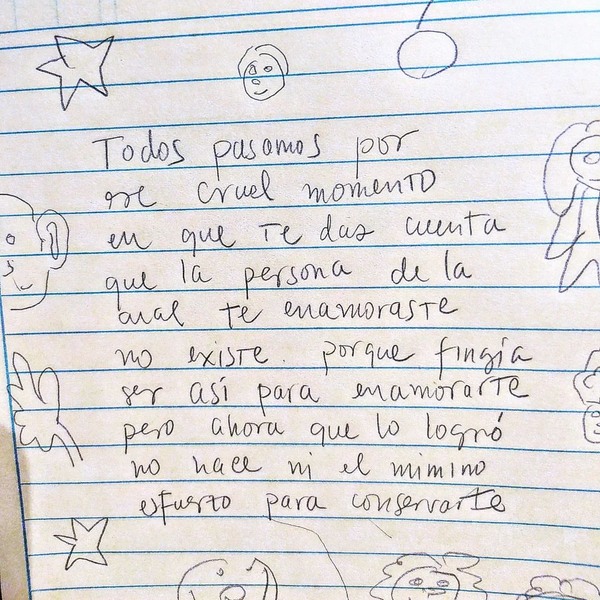 Todos pasamos por
ese cruel momento
en que te das cuenta
que la persona de la
cual te enamoraste
no existe. porque fingía
ser así para enamorarte
pero ahora que lo logró
no hace ni el mimino
esfuerzo para conservarte